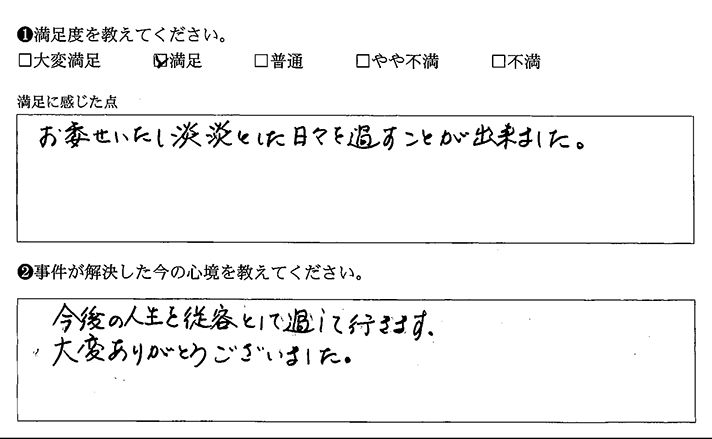 ❶満足度を教えてください。
□大変満足 ☑満足 □普通 □やや不満 □不満
満足に感じた点
お委せいたし淡淡とした日々を過すことが出来ました。
❷事件が解決した今の心境を教えてください。
今後の人生を従容として過して行きます。
大変ありがとうございました。